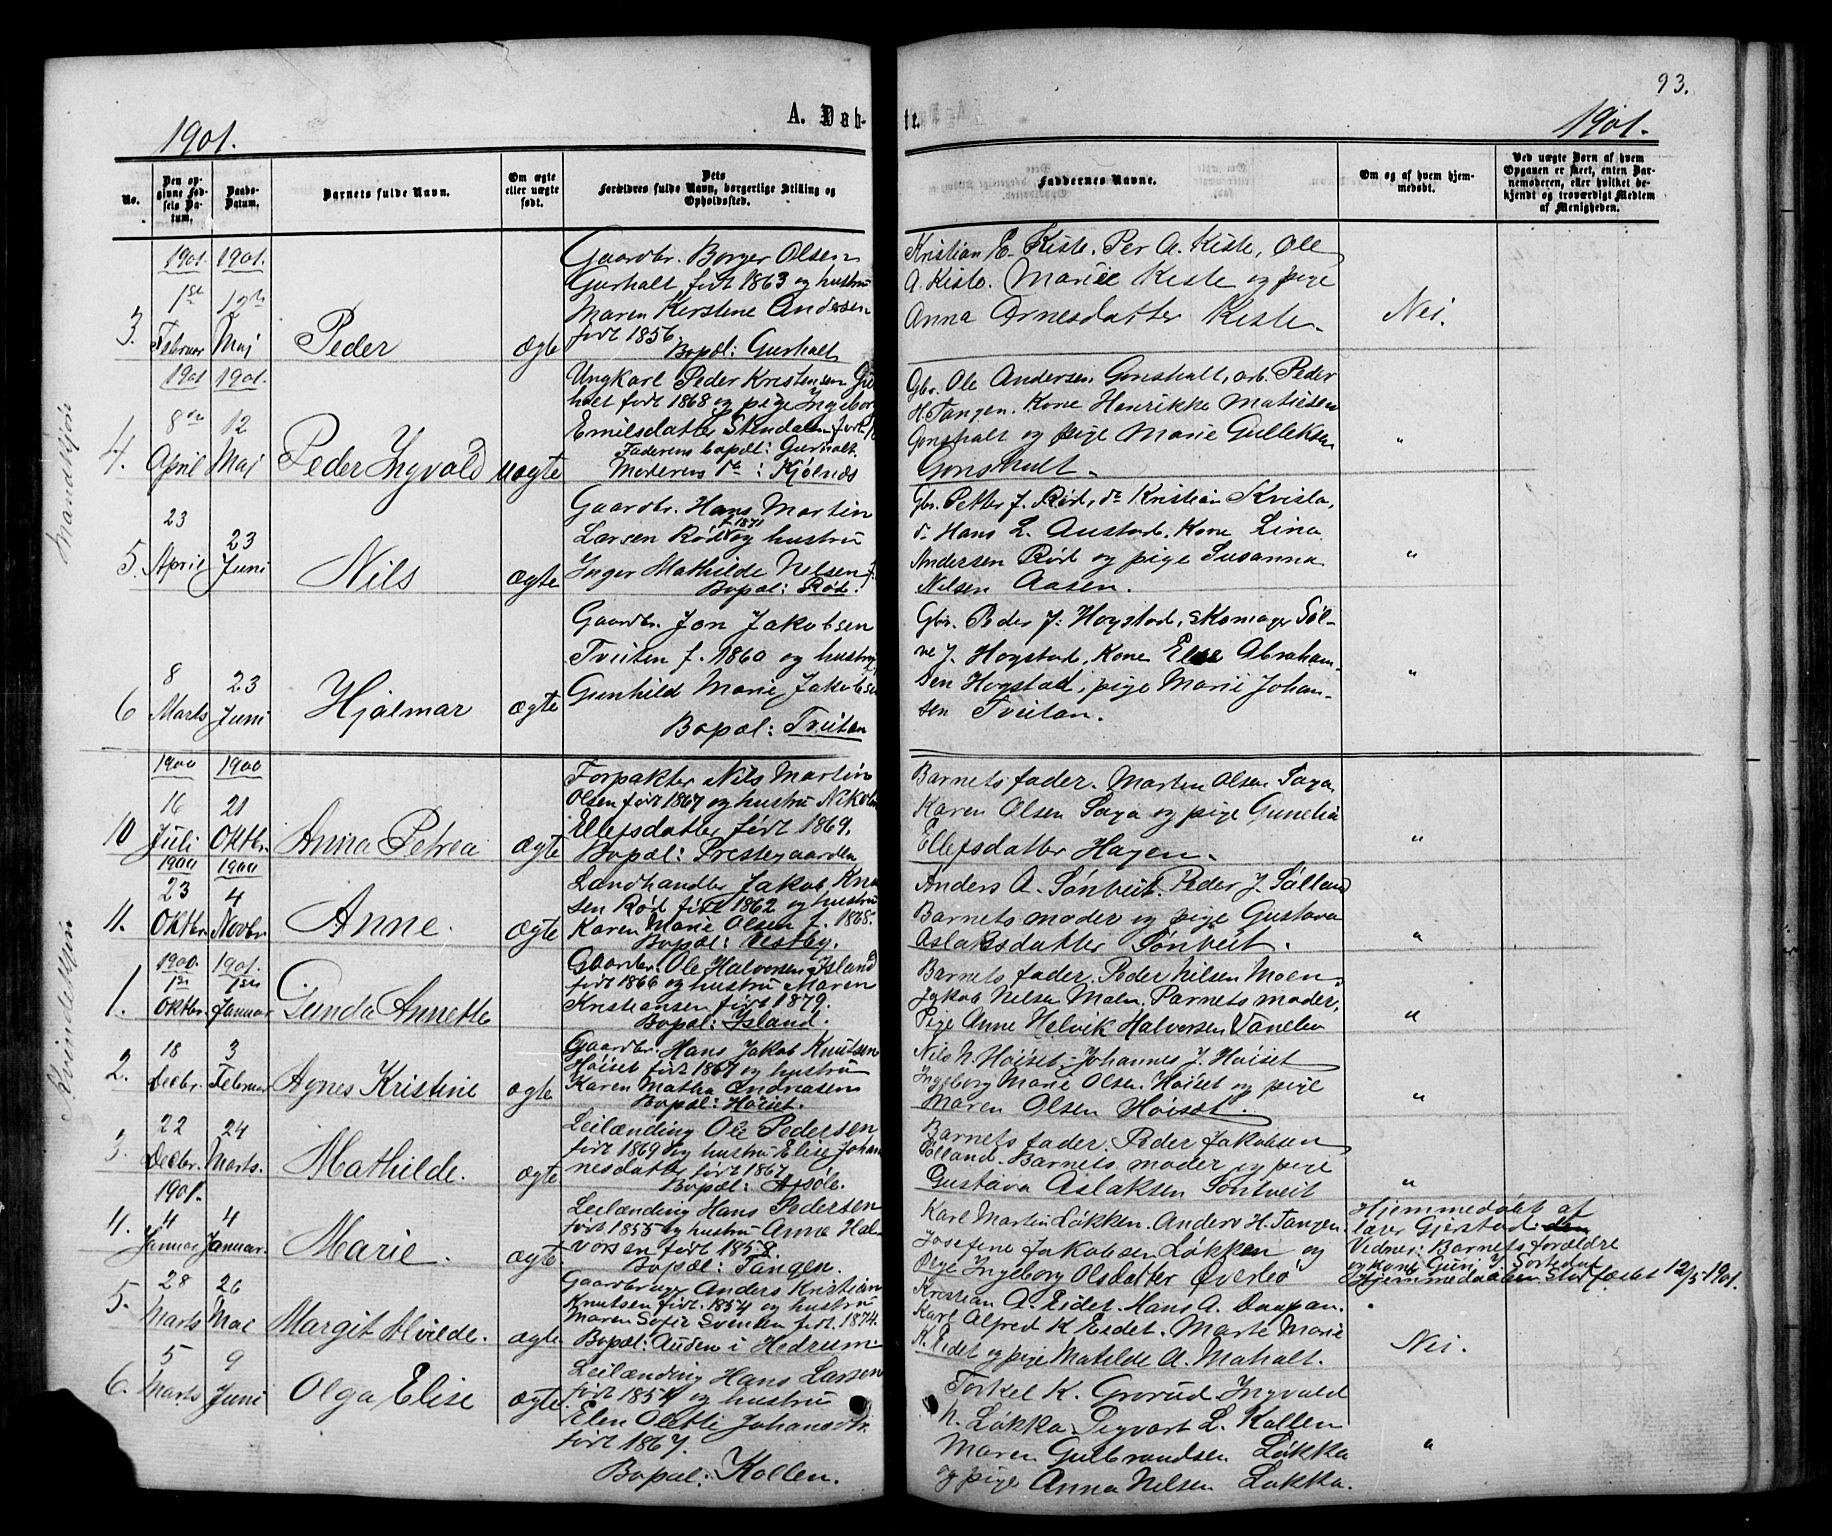 93.
A. Døbte.
1901.
1901.
No.
Den opgivne Fødsels Datum.
Daabs-Datum.
Barnets fulde Navn.
Om ægte eller uægte født.
Dets Forældres fulde Navn, borgerlige Stilling og Opholdssted.
Faddernes Navne.
Om og af hvem hjemmedøbt.
Ved uægte Børn af hvem Opgaven er skeet, enten Barnemoderen, eller hvilket bekjendt og troværdigt Medlem af Menigheden.
Mandkjøn
3. 1901. 1ste Februar
1901. Maj
Peder
Ægte
Gaardbr. Borger Olsen
Gurholt født 1863 og hustru
Maren Kerstene Andersen
født 1856.
Bopæl: Gurholt
Kristian E. Kiste. Per A. Kiste, Ole
A. Kiste. Marie Kiste og pige
Anna Arnesdatter Kiste.
Nei.
4. 1901 8de April
1901. 12 Maj
Peder Ingvald
Uægte
Ungkarl Peder Kristensen
født 1868 og pige Ingeborg
Emilsdatter Stendalen
Faderens bopæl: Gurholt.
Moderens do: Kjølnes
Gbr. Ole Andersen Gonsholt, arb. Peder
H. Tangen. Kone Henrikke Matisen
Gonsholt og pige Marie Gulleksen
Gonsholt.
"
5. 23 April
23 Juni
Nils
Ægte
Gaardbr. Hans Martin
Larsen Rød f. 1871 og hustru
Inger Mathilde Nelsen f.
Bopæl: Rød.
Gbr. Petter J. Rød, do Kristian Kvisla,
do Hans L. Austad. Kone Lina
Andersen Rød og pige Susanna
Nelsen Aasen.
"
6 8 Marts
23 Juni
Hjalmar
Ægte
Gaardbr. Jon Jakobsen
Tveiten f. 1860 og hustru
Gunhild Marie Jakobsen
Bopæl: Tveiten
Gbr. Peder J. Hogstad, skomager Sølve
J. Hogstad, Kone Else Abrahamsen
Hogstad, pige Marie Johansen
Tveitan.
"
Kvindekjøn
10 1900 16 Juli
1900 21 Oktbr.
Anna Petrea
Ægte
Forpakter Nils Martin
Olsen født 1867 og hustru
Ellefsdatter født 1869.
Bopæl: Prestegaarden
Barnets fader. Martin Olsen Saga
Karen Olsen Saga og pige Gunelia
Ellefsdatter Hagen.
"
11. 1900 23 Oktbr.
1900 4 Novbr.
Anne.
Ægte
Landhandler Jakob Knudsen
Rød født 1862 og hustru
Karen Marie Olsen f. 1865.
Bopæl: Vestby.
Anders A. Sønveit. Peder J. Sølland
Barnets moder og pige Gustava
Aslaksdatter Sønveit.
"
1. 1900. 1ste Oktbr.
1901. 1ste Januar
Gunda Annette
Gaardbr. Ole Halvorsen Island
født 1866 og hustru Maren
Kristiansen født 1879.
Bopæl: Island.
Barnets fader. Peder Nilsen Moen.
Jakob Nelsen Moen. Barnets moder,
Pige Anne Helvik Halvorsen Vanebo
"
2. 18 Decbr.
3 Februar
Agnes Kristine
Ægte
Gaardbr. Hans Jakob Knutsen
Høiset født 1867 og hustru
Karen Matha Andreasen
Bopæl: Høiset.
Nils N. Høiset. Johannes J. Høiset
Ingeborg Marie Olsen Høiset og pige
Maren Olsen Høiset.
"
3. 22 Decbr.
24 Marts.
Mathilde.
Ægte
Leilænding Ole Pedersen
født 1869 og hustru Elise Johannesdatter
født 1867
Bopæl:
Barnets fader. Peder Jakobsen
Ølland. Barnets moder og pige
Gustava Aslaksen Sønveit
"
4. 1901. 4 Januar
4 Januar.
Marie.
Ægte
Leilænding Hans Pedersen
født 1855 og hustru Anne Halvorsen
født 1858.
Bopæl: Tangen.
Karl Martin Løkken. Anders H. Tangen.
Josefine Jakobsen Løkken og
Pige Ingeborg Olsdatter Øverbø
Hjemmedøbt af
lærer Gjerstad.
Vidner: Barnets forældre
og kone Guri J. Sortedal
Hjemmedaaben stadfæstet 12/5 1901.
5. 28 Marts
26 Mai
Margit Hvilde.
Ægte
Gaardbruger Anders Kristian
Knutsen født 1854 og hustru
Maren Sofie Svensen født 1874.
Bopæl: Auden i Hedrum
Kristian A. Eidet. Hans A.
Karl Alfred K Eidet. Marte Marie
K. Eidet og pige Matilde A. Maholt.
Nei.
6. 5 Marts
9 Juni
Olga Elise
Ægte.
Leilænding Hans Larsen
født 1854 og hustru
Elen Olette Johansdtr.
født 1867.
Bopæl: Kollen.
Torkel K. Grorud. Ingvald
N. Løkka. Sigvart L. Kollen
Maren Gulbrandsen Løkka
og pige Anna Nelsen Løkka.
"